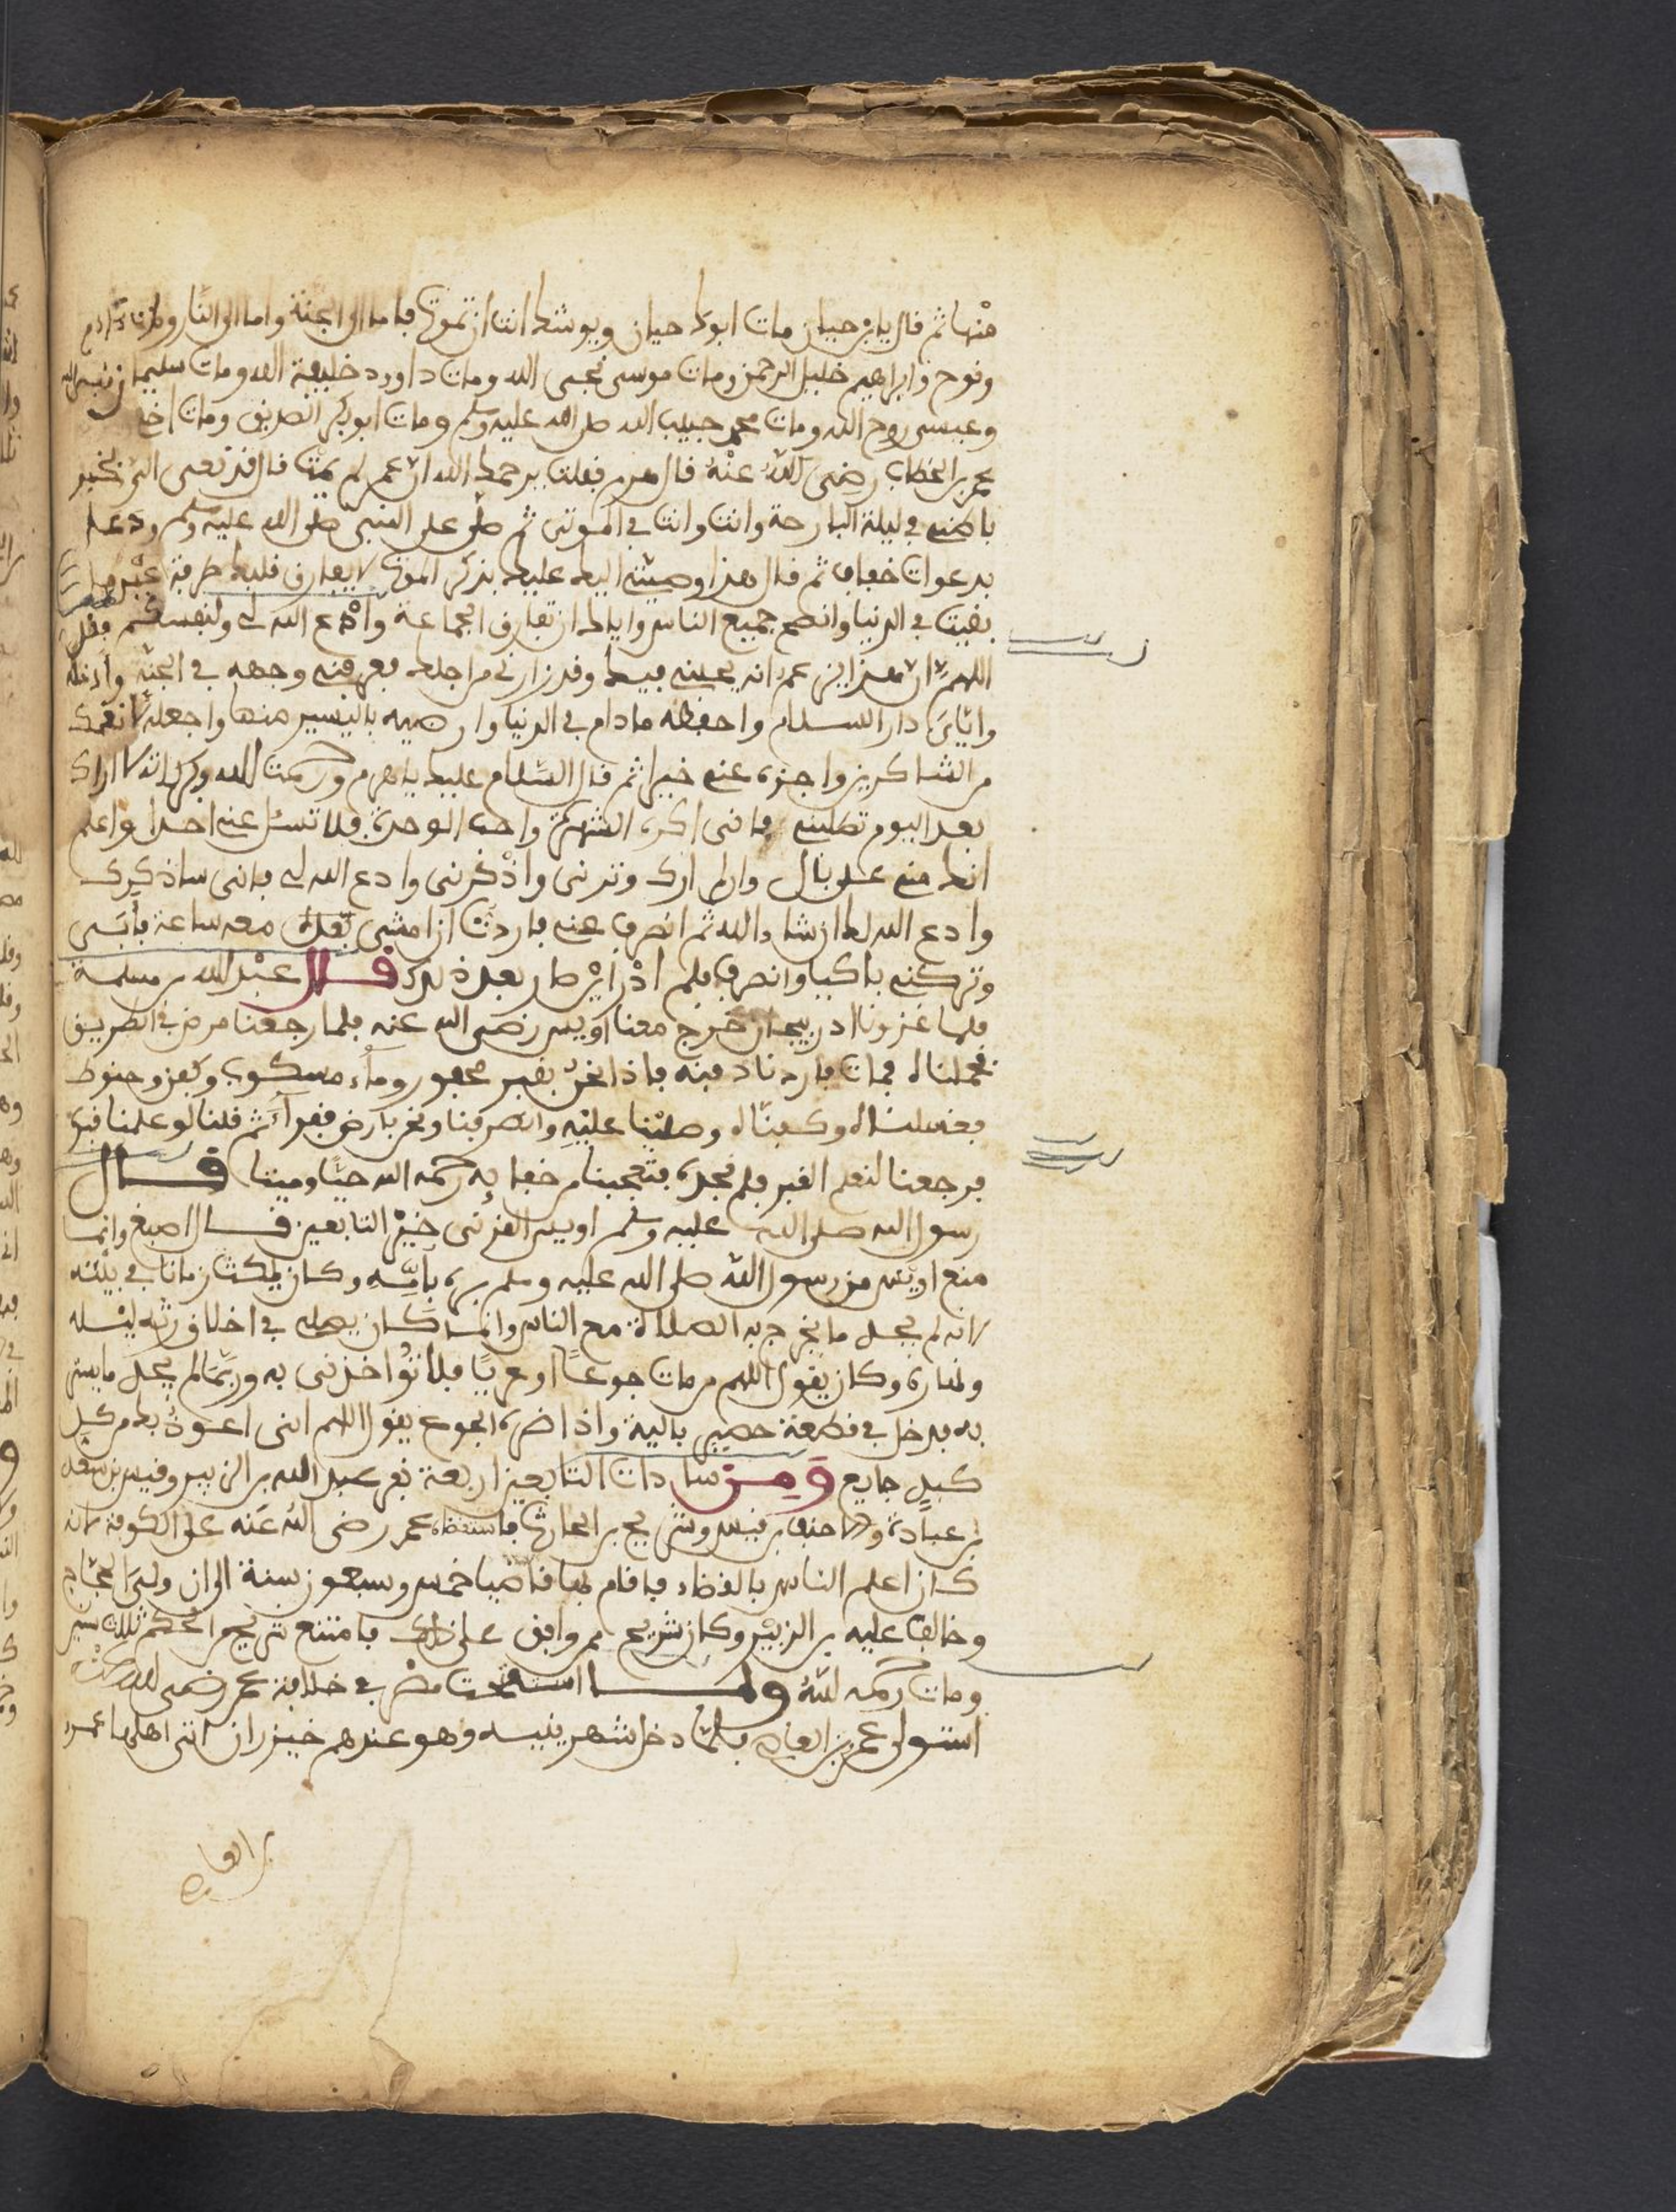 منها ثم قال يابن حيان مات ابوك حيان ويوشك انت ان تموت فاما الى الجنة واما الى النار ومات ادم
ونوح وابراهيم خليل الرحمن ومات موسى نجي الله ومات داوود خليفة الله ومات سليمان نبي الله
وعيسى روح الله ومات محمد حبيب الله صلى الله عليه وسلم ومات ابو بكر الصديق ومات اخي
عمر بن الخطاب رضي الله عنه قال هرم فقلت يرحمك الله ان عمر لم يمت قال قد نعى الي الخبر
باطني في ليلة البارحة وانت وانا في الموتى ثم صلى على النبي صلى الله عليه وسلم ودعا
بدعوات خفاف ثم قال هذا وصيتي اليك عليك بذكر الموت لا يفارق قلبك طرفة عين ما
بقيت في الدنيا وانصح جميع الناس واياك ان تفارق الجماعة وادع الله لي ولنفسك ثم قال
اللهم ان هذا يزعم انه يحبني فيك وقد زارني من اجلك فعرفني وجهه في الجنة وادخله
واياي دار السلام واحفظه ما دام في الدنيا وارضيه باليسير منها واجعله لانعمك
من الشاكرين واجزه عني خيرا ثم قال السلام عليك يا هرم ورحمت الله وبركاته لا اراك
بعد اليوم تطلبني فانى اكره الشهرة واحب الوحدة فلا تسئل عني احدا واعلم
انك مني على بال وان لم ارك وترني واذكرني وادع الله لي فاني ساذكرك
وادع الله لك ان شاء الله ثم انصرف عني فاردت ان امشي معه ساعة فأبى
وتركني باكيا وانصرف فلم ادر اين صار بعد ذلك قال عبد الله بن مسلمة
فلما غزونا ادربيجان خرج معنا اويس رضي الله عنه فلما رجعنا مرض في الطريق
فحملناه فمات فاردنا دفنه فاذا نحن بقبر محفور وماء مسكوب وكفن وحنوط
فغسلناه وكفناه وصلينا عليه وانصرفنا ونحن بارض قفراء ثم قلنا لو علمنا قبره
فرجعنا لنعلم القبر فلم نجده فتعجبنا من خفايه رحمه الله حيا وميتا قال
رسول الله صلى الله عليه وسلم اويس القرني خير التابعين قال اصبغ وانما
منع اويس من رسول الله صلى الله عليه وسلم بره بامه وكان يمكث زمانا في بيته
لانه لم يجد ما يخرج به الصلاة مع الناس وانما كان يصلي في اخلاق رثه ليله
ونهاره وكان يقول اللهم من مات جوعا او عريا فلا تواخذني به وربما لم يجد ما يستر
به يدخل في قطعة حصير بالية واذا ضره الجوع يقول اللهم اني اعوذ بك من كل
كبد جايع ومن سادات التابعين اربعة نفر عبد الله بن الزبير وقيس بن سعد
بن عبادة والاحنف بن قيس وشريح بن الحارث فاستقضاه عمر رضي الله عنه على الكوفة لانه
كان اعلم الناس بالقضاء فاقام بها قاضيا خمس وسبعون سنة الى ان ولي الحجاج
وخالف عليه بن الزبير وكان شريح لم يوافق على ذلك فامتنع شريح الحكم ثلاث سنين
ومات رحمه الله ولما استفتحت مصر في خلافة عمر رضي الله عنه
استولى عمر بن العاص فلما دخل شهر بنيسه وهو عندهم خيزران اتى اهلها عمر
بن العاص